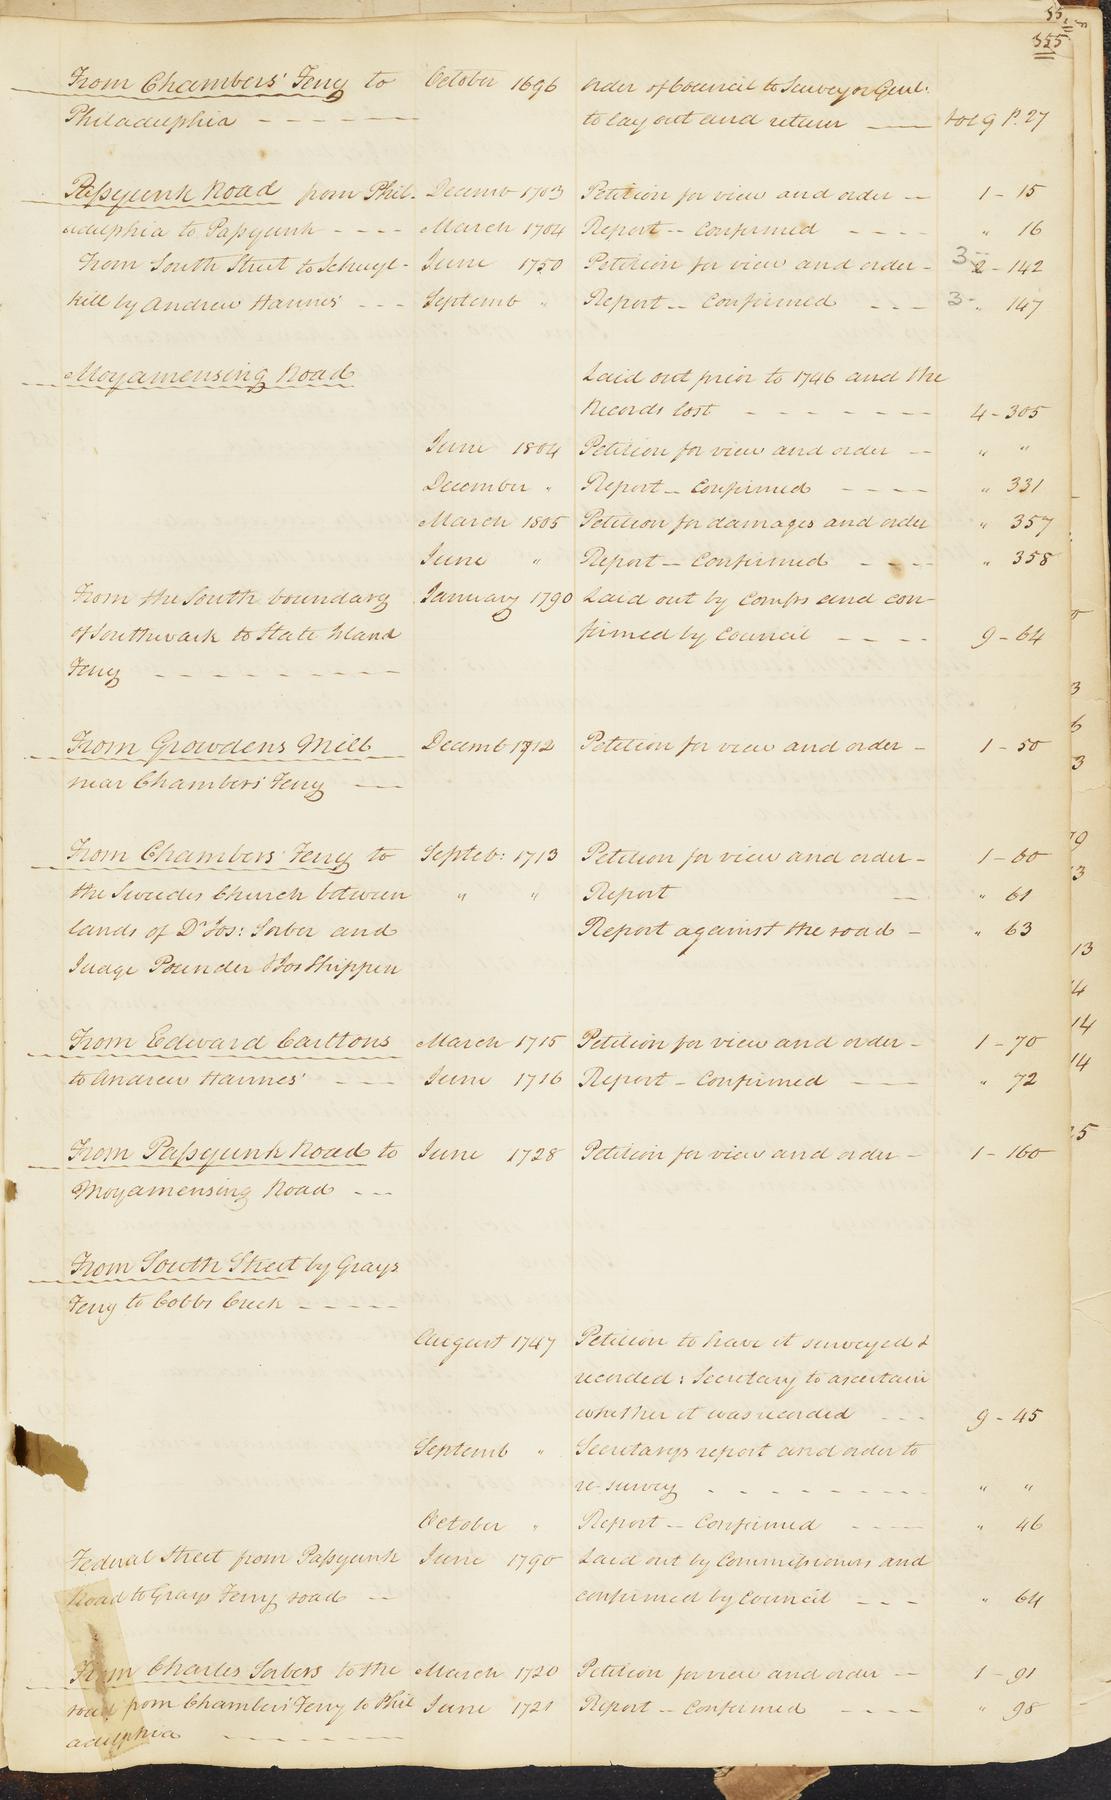 55
355
From Chambers' Ferry to October 1696 Order of Council to Surveyor Genl.
Philadelphia - - - - - - to lay out and return — Vol 9 P. 27
Passyunk Road from Phil- Decemb 1703 Petition for view and order -- 1 - 15
adelphia to Passyunk - - - - March 1704 Report -- Confirmed - - - - " 16
From South Street to Schuyl- June 1750 Petition for view and order - 3- 2 - 142
kill by Andrew Hannes' - - - Septemb " Report -- Confirmed - - - 3- " 147
Moyamensing Road Laid out prior to 1746 and the
Records lost - - - - - - - 4 - 305
June 1804 Petition for view and order -- " "
December " Report -- Confirmed - - - - " 331
March 1805 Petition for damages and order " 357
June " Report -- Confirmed - - - - " 358
From the South boundary January 1790 Laid out by Comrs and con-
of Southwark to State Island firmed by Council - - - - 9 - 64
Ferry - - - - - - - - -
From Growdens Mill Decemb 1712 Petition for view and order - 1 - 50
near Chambers' Ferry —
From Chambers' Ferry to Septeb: 1713 Petition for view and order - 1 - 60
the Swedes Church between " " Report — " 61
lands of Dr Jos: Sorber and Report against the road - " 63
Judge Pounder & Jos Shippen
From Edward Carltons March 1715 Petition for view and order - 1 - 70
to Andrew Hannes' - - - June 1716 Report - Confirmed - - - " 72
From Passyunk Road to June 1728 Petition for view and order - 1 - 160
Moyamensing Road - - -
From South Street by Grays
Ferry to Cobbs Creek - - - - -
August 1747 Petition to have it surveyed &
recorded: Secretary to ascertain
whether it was recorded - - - 9 - 45
Septemb " Secretarys report and order to
re-survey - - - - - - - - " "
October " Report -- Confirmed - - - - " 46
Federal Street from Passyunk June 1790 Laid out by Commissioners and
Road to Grays Ferry road -- confirmed by Council - - - " 64
From Charles Sorbers to the March 1720 Petition for view and order -- 1 - 91
road from Chambers' Ferry to Phil June 1721 Report -- Confirmed - - - - " 98
adelphia - - - - - - - -